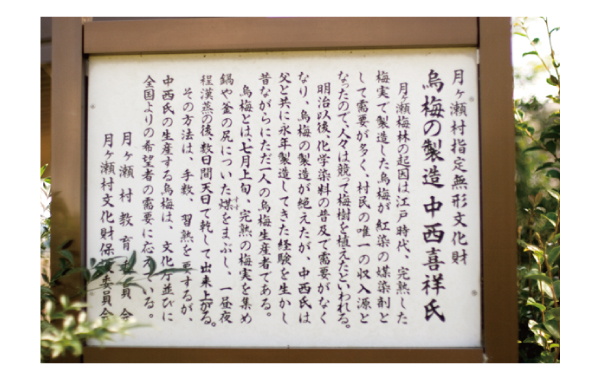 月ヶ瀬村指定無形文化財
烏梅の製造 中西喜祥氏
月瀬梅林の起因は江戸時代、完熟した
梅実で製造した烏梅が紅染の媒染剤と
して需要が多く、村民の唯一の収入源と
なったので、人々は競って梅樹を植えたといわれる。
明治以後、化学染料の普及で需要がなく
なり、烏梅の製造が絶えたが、中西氏は
父と共に永年製造してきた経験を生かし
昔ながらにただ一人の烏梅生産者である。
烏梅とは、七月上旬、完熟の梅実を集め
鍋や釜の尻についた煤をまぶし、一昼夜
程燻蒸の後、数日間天日で乾して出来上がる。
その方法は、手数、習熟を要するが、
中西氏の生産する烏梅は、文化庁並びに
全国よりの希望者の需要に応えている。
月ヶ瀬村教育委員会
月ヶ瀬村文化財保護委員会